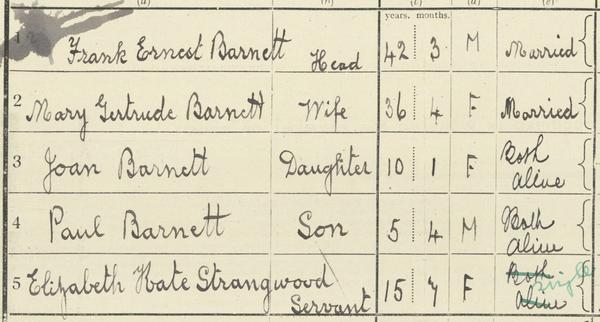 (a) (b) (c) (d) (e)
years. months.
1 Frank Ernest Barnett Head 42 3 M Married
2 Mary Gertrude Barnett Wife 36 4 F Married
3 Joan Barnett Daughter 10 1 F Both
Alive
4 Paul Barnett Son 5 4 M Both
Alive
5 Elizabeth Kate Strangwood Servant 15 7 F Both
Alive
Single